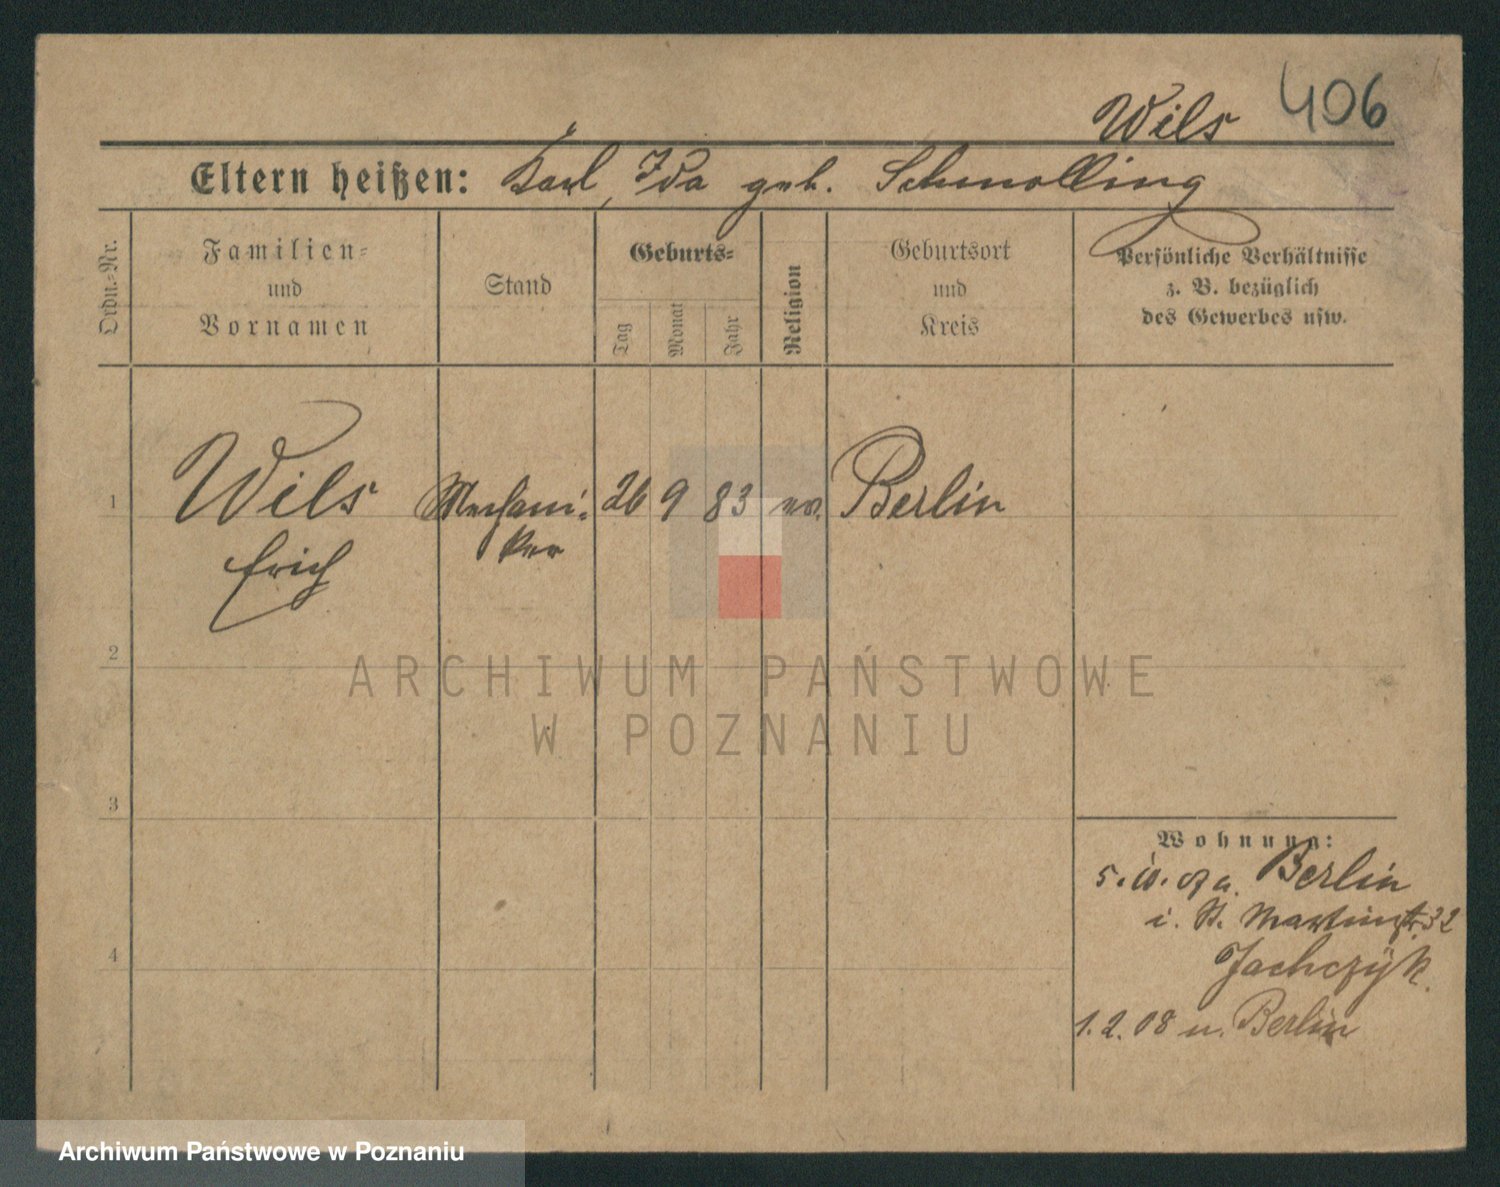 Wils 406
Eltern heißen: Karl, Ida geb. Schmolling
Ordn.-Nr.
Familien-
und
Vornamen
Stand
Geburts-
Tag
Monat
Jahr
Religion
Geburtsort
und
Kreis
Persönliche Verhältnisse
z. B. bezüglich
des Gewerbes usw.
1 Wils Mechani- 26 9 83 ev. Berlin
ker
Erich
2
ARCHIWUM PAŃSTWOWE
W POZNANIU
3
Wohnung:
Berlin
i. St. Martinstr. 32
Jachczyk.
4
1.2.08 n. Berlin
Archiwum Państwowe w Poznaniu